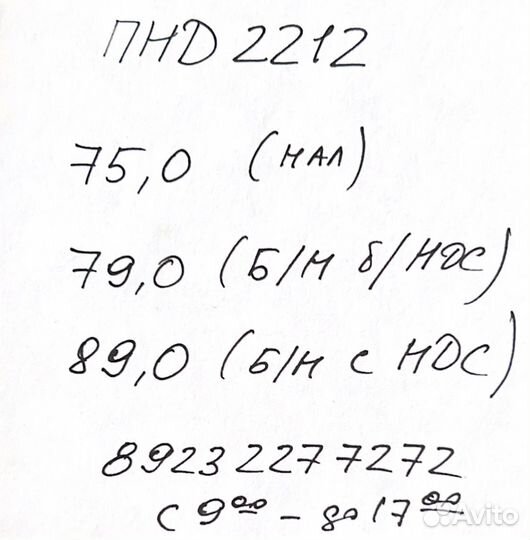 ПНД 2212
75,0 (НАЛ)
79,0 (Б/Н б/НДС)
89,0 (Б/Н С НДС)
89232277272
с 9⁰⁰ – до 17⁰⁰
Avito